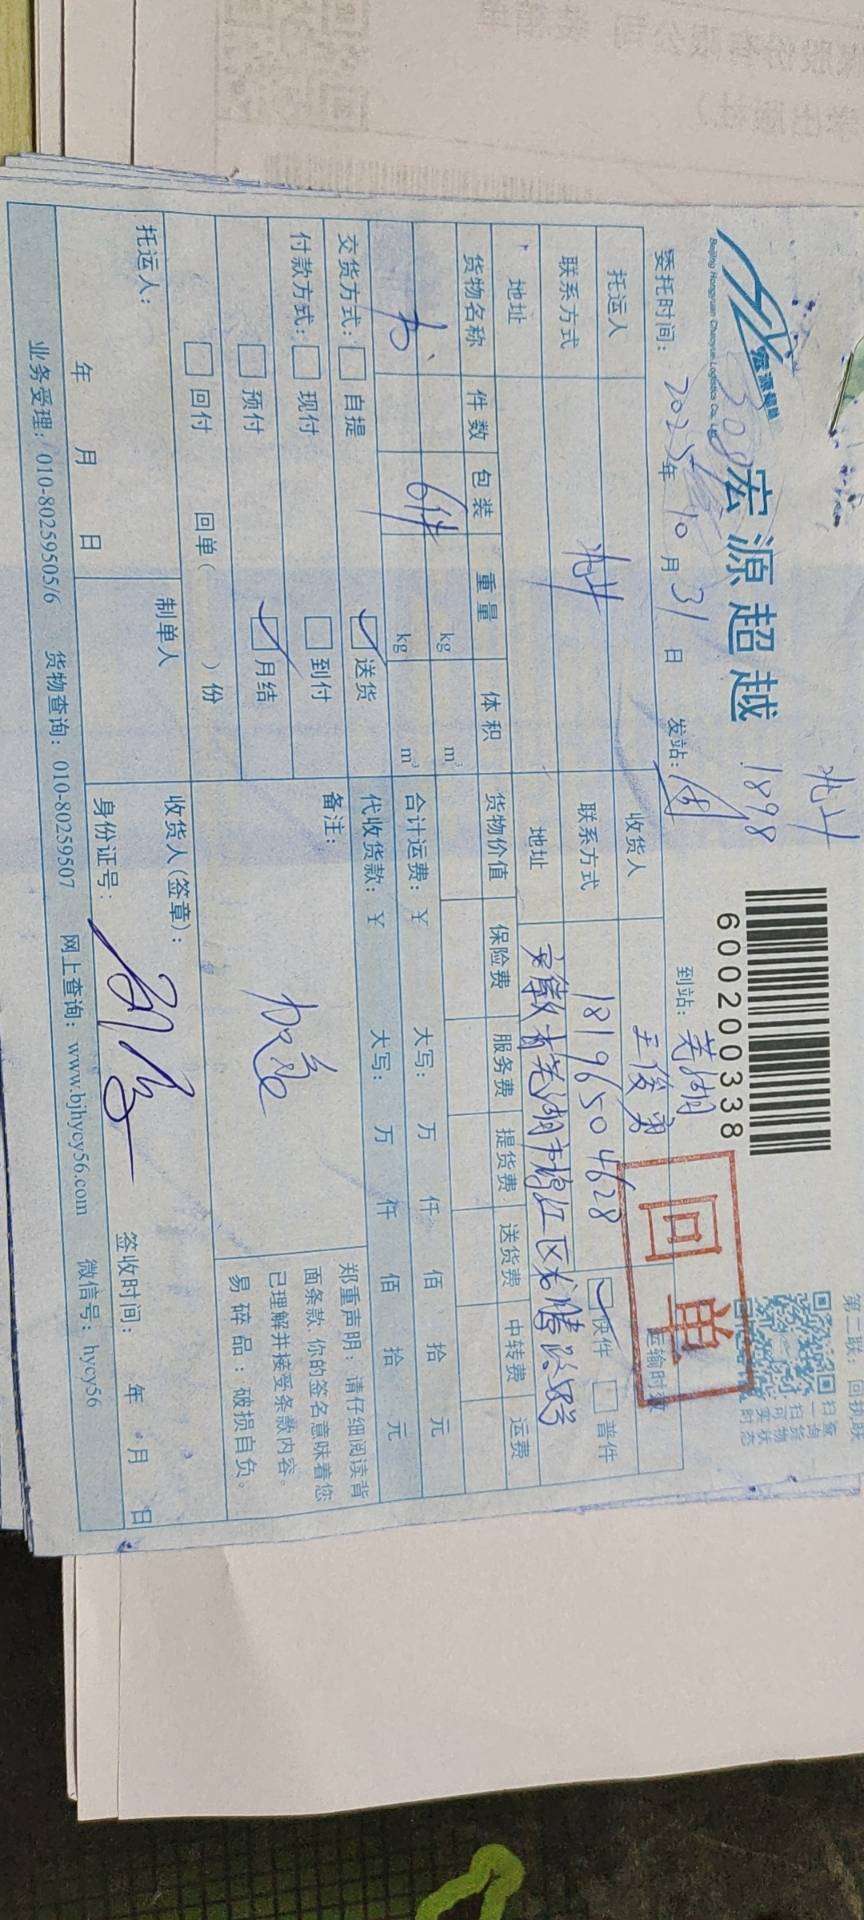 兆廾
第二联：回执联
宏源超越
Beijing Hongyuan Chaoyue Logistics Co., Ltd.
宏源超越
1898
600200338
扫一扫 查询货物 可实时状态
回单
委托时间：2025年10月31日 发站： 到站：芜湖
托运人 收货人 王俊勇 运输时效
联系方式 联系方式 18196504628 快件 普件
地址 地址 安徽省芜湖市鸠江区
货物名称 件数 包装 重量 体积 货物价值 保险费 服务费 提货费 送货费 中转费 运费
书 6件 kg m³
kg m³ 合计运费：¥ 大写： 万 仟 佰 拾 元
交货方式： 自提 送货 代收货款：¥ 大写： 万 仟 佰 拾 元
付款方式： 现付 到付 备注： 加急
预付 月结
回付 回单（ ）份
郑重声明：请仔细阅读背
面条款，你的签名意味着您
已理解并接受条款内容。
易碎品：破损自负。
托运人： 制单人 收货人(签章)：
年 月 日 身份证号： 签收时间： 年 月 日
业务受理：010-80259505/6 货物查询：010-80259507 网上查询：www.bjhycy56.com 微信号：hycy56